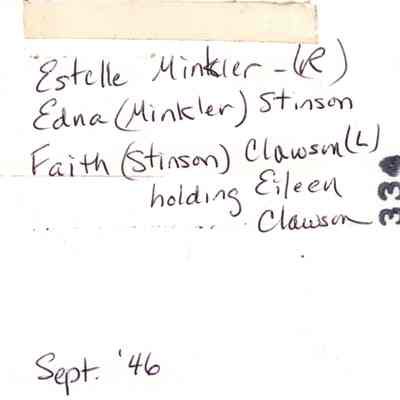 Estelle Minkler - (R)
Edna (Minkler) Stinson
Faith (Stinson) Clawson (L)
holding Eileen
Clawson
334
Sept. '46